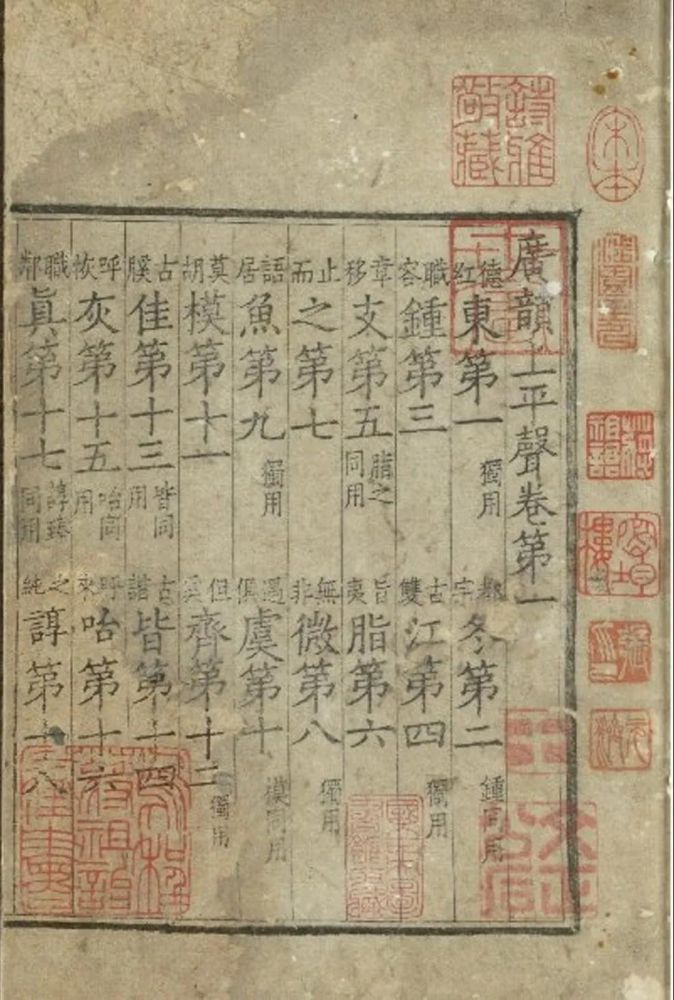 宋本
廣韻上平聲卷第一
德紅東第一獨用 都宗冬第二鍾同用
職容鍾第三 古雙江第四獨用
章移支第五脂之同用 旨夷脂第六
止而之第七 無非微第八獨用
語居魚第九獨用 遇俱虞第十模同用
莫胡模第十一 齊第十二獨用
古膎佳第十三皆同用 古諧皆第十四
呼恢灰第十五咍同用 呼來咍第十六
職鄰眞第十七諄臻同用 之純諄第十八
蔣祖詒